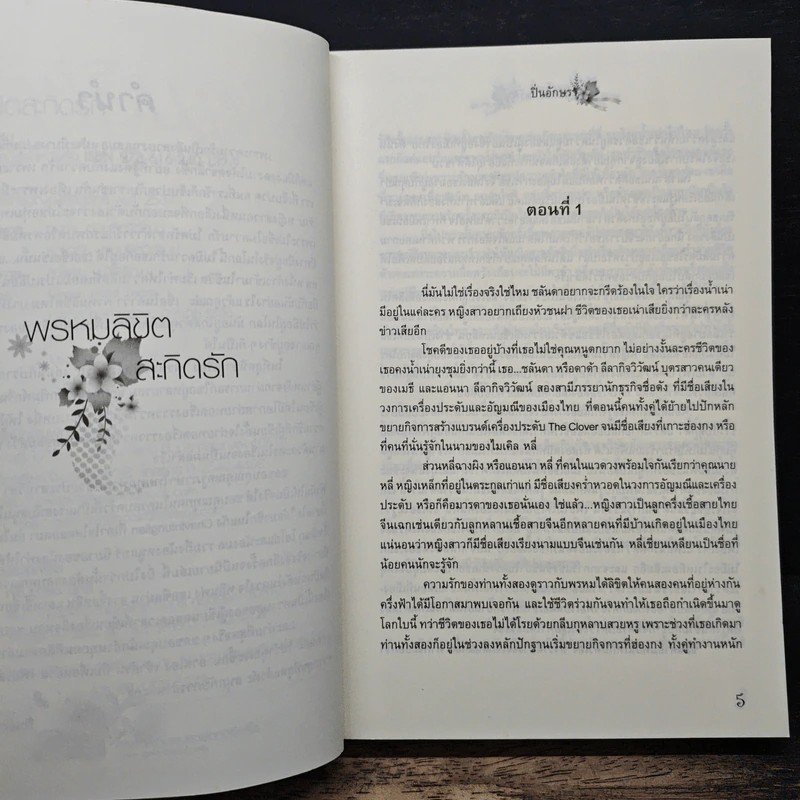 พรหมลิขิต
สะกิดรัก
ปิ่นอักษรา
ตอนที่ 1
นี่มันไม่ใช่เรื่องจริงใช่ไหม ชลันดาอยากจะกรีดร้องในใจ ใครว่าเรื่องน้ำเน่า
มีอยู่ในแค่ละคร หญิงสาวอยากเถียงหัวชนฝา ชีวิตของเธอเน่าเสียยิ่งกว่าละครหลัง
ข่าวเสียอีก
โชคดีของเธออยู่บ้างที่เธอไม่ใช่คุณหนูตกยาก ไม่อย่างงั้นละครชีวิตของ
เธอคงน้ำเน่ายุงชุมยิ่งกว่านี้ เธอ...ชลันดา หรือดาด้า ลีลากิจวิวัฒน์ บุตรสาวคนเดียว
ของเมธี และแอนนา ลีลากิจวิวัฒน์ สองสามีภรรยานักธุรกิจชื่อดัง ที่มีชื่อเสียงใน
วงการเครื่องประดับและอัญมณีของเมืองไทย ที่ตอนนี้คนทั้งคู่ได้ย้ายไปปักหลัก
ขยายกิจการสร้างแบรนด์เครื่องประดับ The Clover จนมีชื่อเสียงที่เกาะฮ่องกง หรือ
ที่คนที่นั่นรู้จักในนามของไมเคิล หลี่
ส่วนหลี่ฉางผิง หรือแอนนา หลี่ ที่คนในแวดวงพร้อมใจกันเรียกว่าคุณนาย
หลี่ หญิงเหล็กที่อยู่ในตระกูลเก่าแก่ มีชื่อเสียงคร่ำหวอดในวงการอัญมณีและเครื่อง
ประดับ หรือก็คือมารดาของเธอนั่นเอง ใช่แล้ว...หญิงสาวเป็นลูกครึ่งเชื้อสายไทย
จีนเฉกเช่นเดียวกับลูกหลานเชื้อสายจีนอีกหลายคนที่มีบ้านเกิดอยู่ในเมืองไทย
แน่นอนว่าหญิงสาวก็มีชื่อเสียงเรียงนามแบบจีนเช่นกัน หลี่เซี่ยนเหลียนเป็นชื่อที่
น้อยคนนักจะรู้จัก
ความรักของท่านทั้งสองดูราวกับพรหมได้ลิขิตให้คนสองคนที่อยู่ห่างกัน
ครึ่งฟ้าได้มีโอกาสมาพบเจอกัน และใช้ชีวิตร่วมกันจนทำให้เธอถือกำเนิดขึ้นมาดู
โลกใบนี้ ทว่าชีวิตของเธอไม่ได้โรยด้วยกลีบกุหลาบสวยหรู เพราะช่วงที่เธอเกิดมา
ท่านทั้งสองก็อยู่ในช่วงลงหลักปักฐานเริ่มขยายกิจการที่ฮ่องกง ทั้งคู่ทำงานหนัก
5